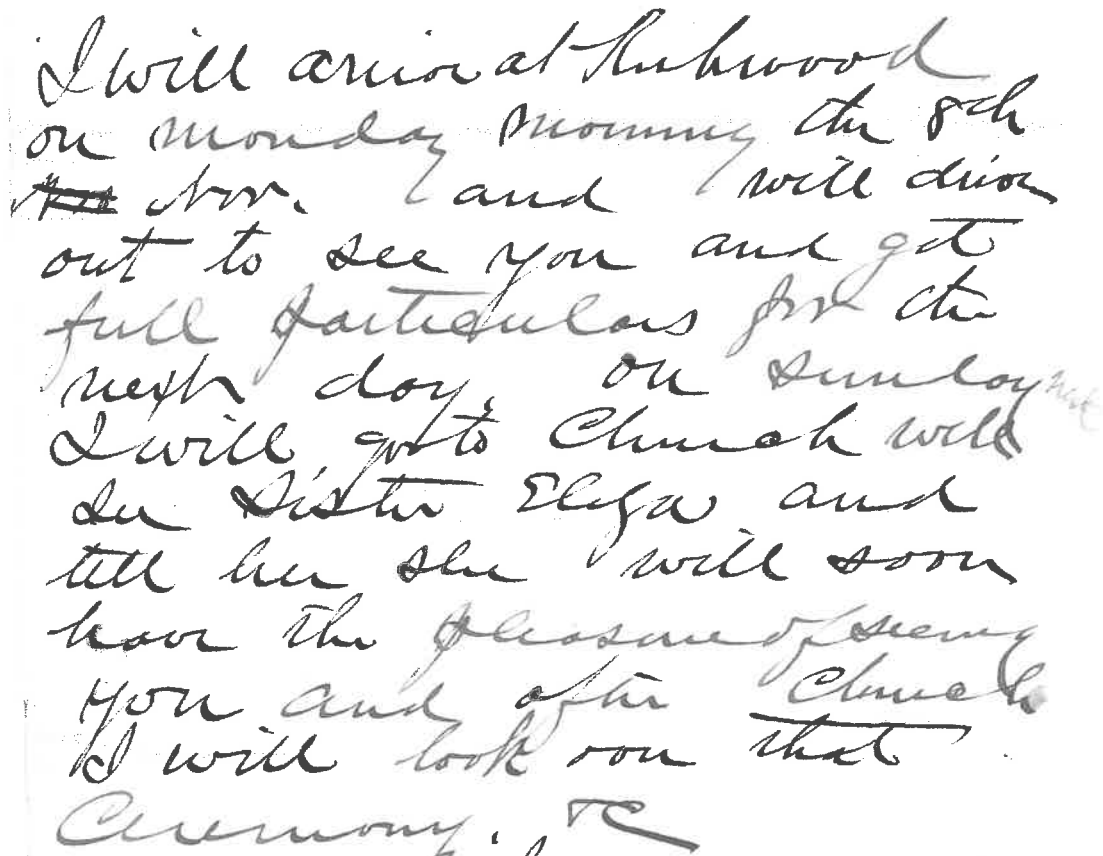 I will arrive at Kirkwood
on monday morning the 8th
Nov. and will drive
out to see you and get
full particulars for the
next day. on Sunday
I will go to Church will
see Sister Eliza and
tell her she will soon
have the pleasure of seeing
you and after Church
I will look over that
Ceremony. &C